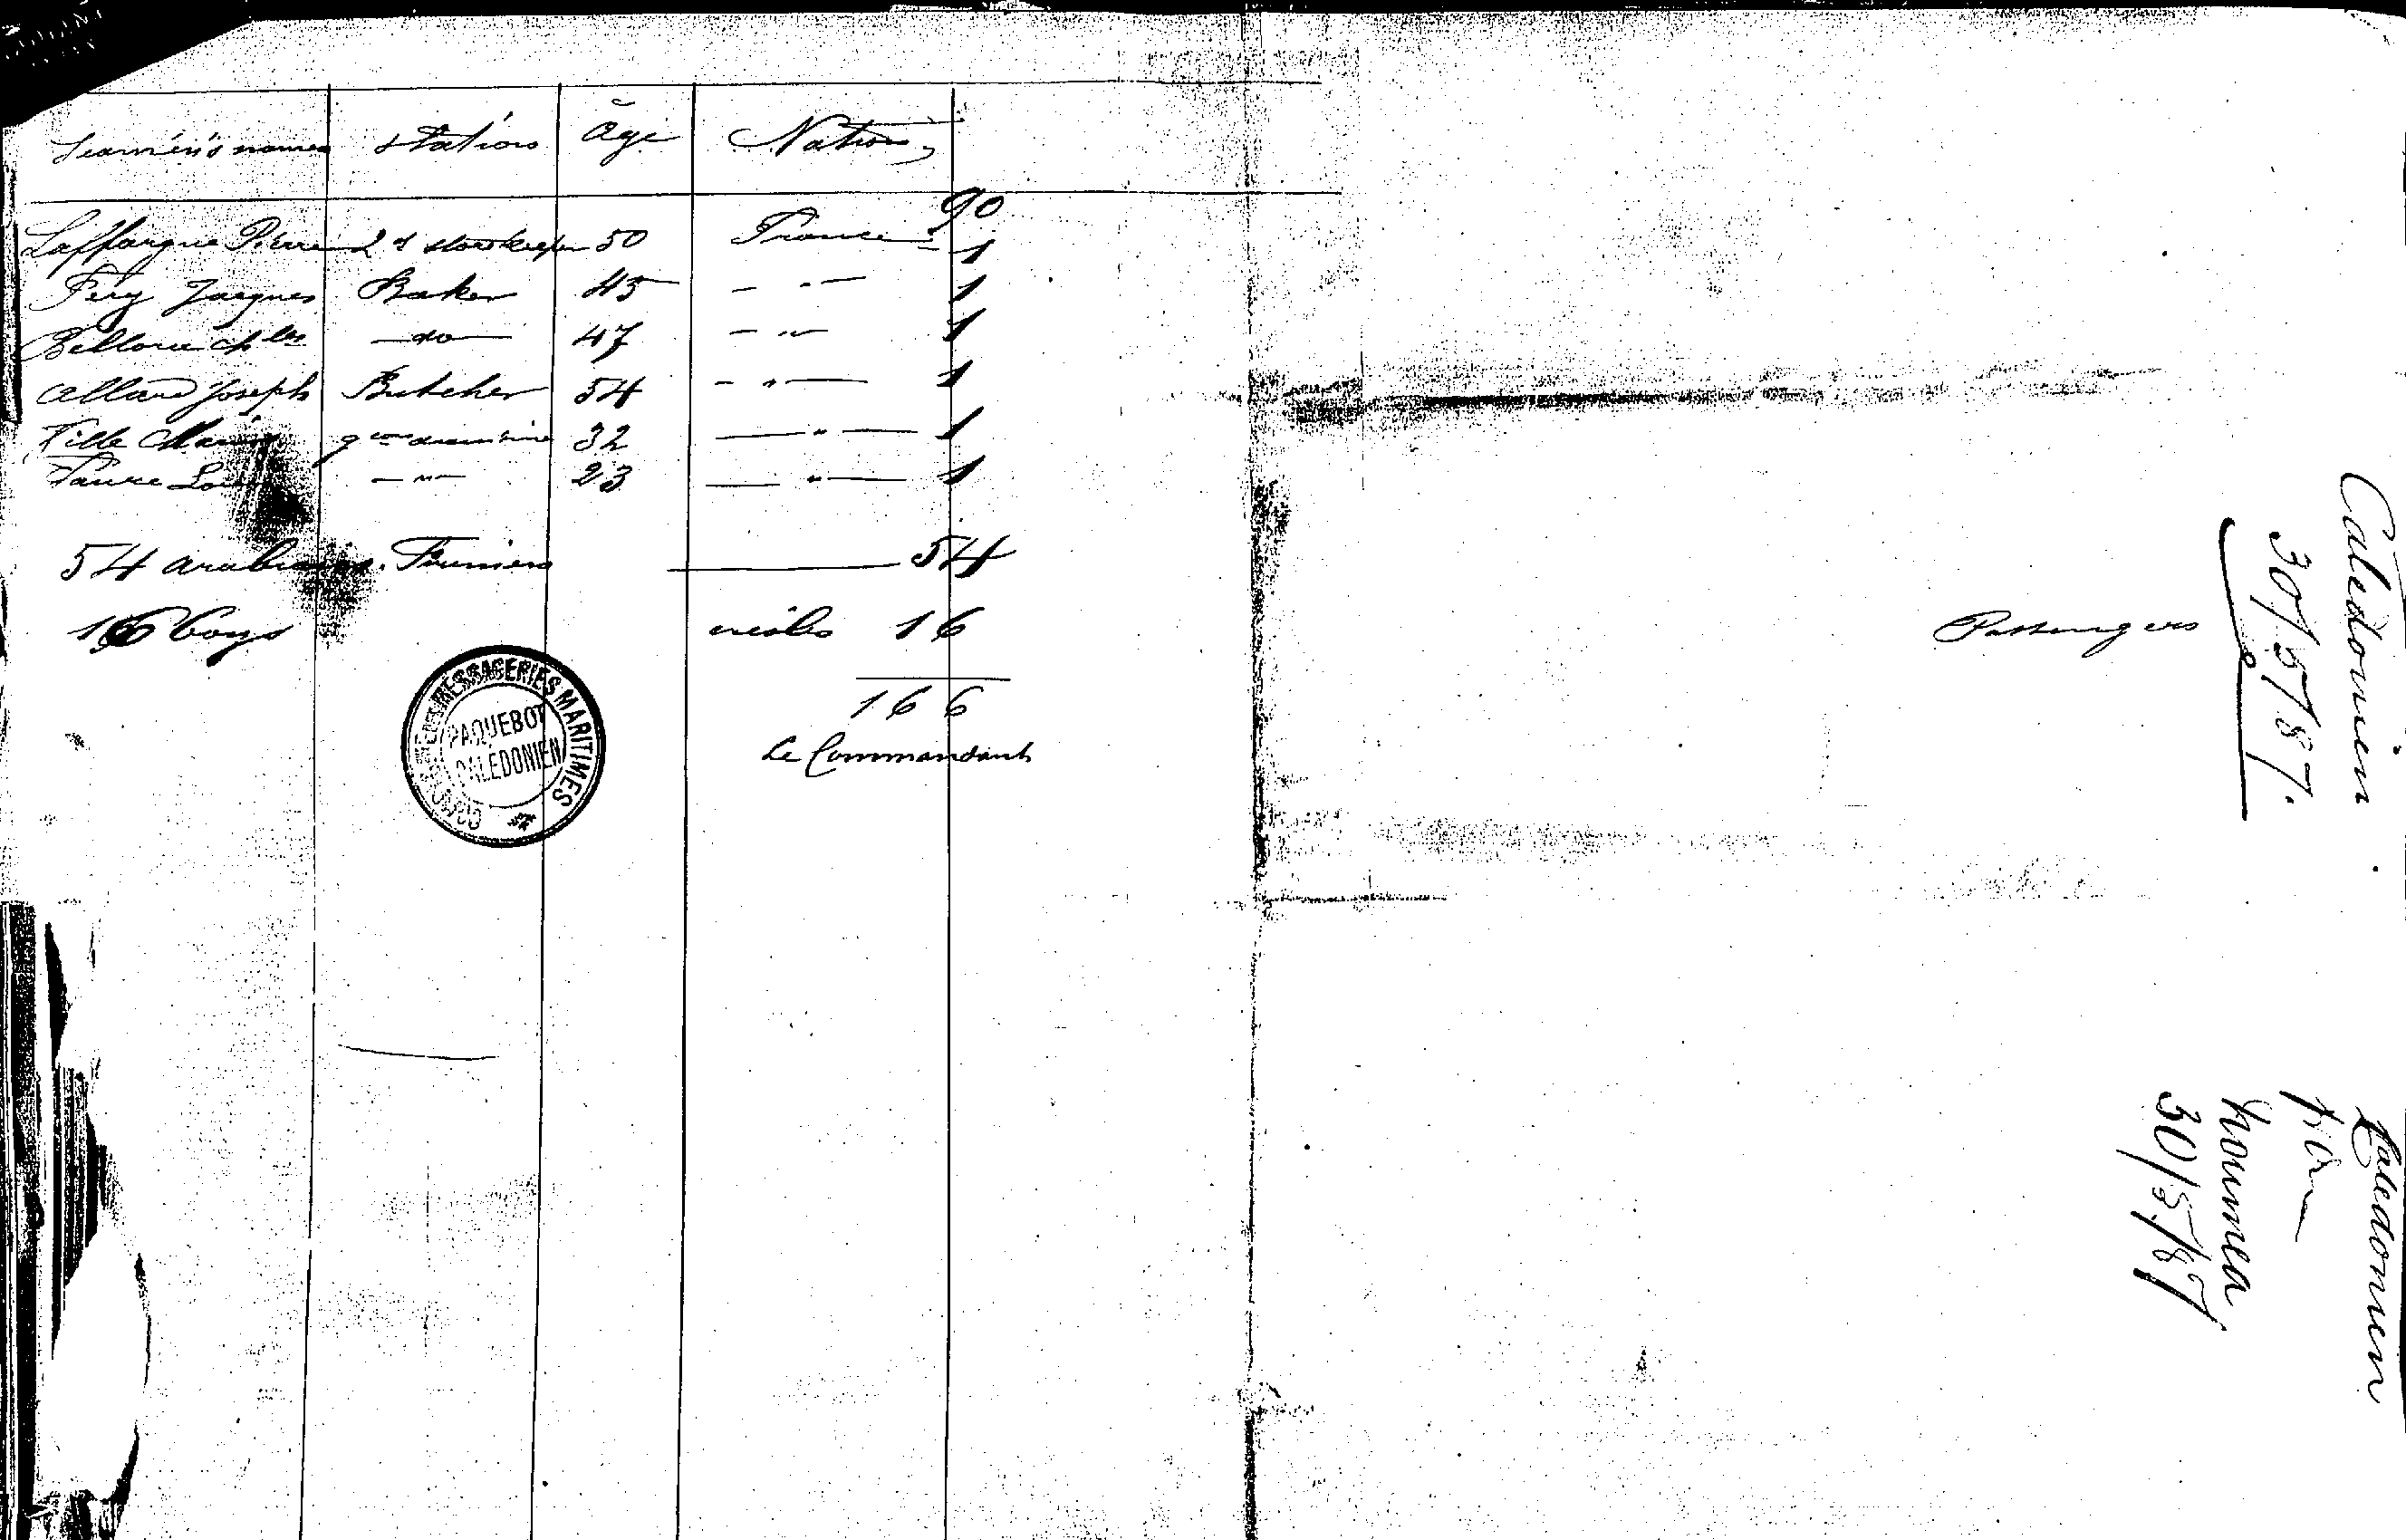 Seamen's names station Age Nation
90
Laffargue Pierre 2d storekeeper 50 France 1
Fery Jacques Baker 45 - " - 1
Bellone Ch les - do - 47 - " - 1
Allard Joseph Butcher 54 - " - 1
Ville 32 - " - 1
Faure Louis - " - 23 - " - 1
54 arabians Firemen 54
16 boys 16
166
Le Commandant
COMPAGNIE DES MESSAGERIES MARITIMES
PAQUEBOT
CALEDONIEN
Passengers
Caledonien
30/5/87.
Caledonien
from
Noumea
30/5/87